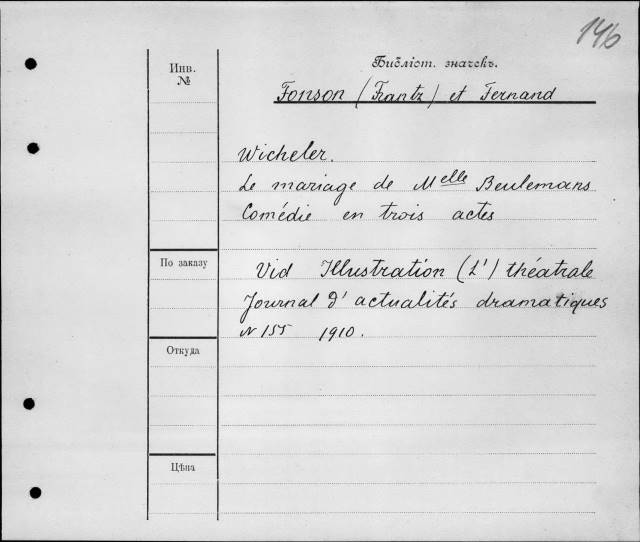 146
Библіот. значекъ.
Инв.
№
Fonson (Frantz) et Fernand
Wicheler.
Le mariage de Melle Beulemans
Comédie en trois actes
По заказу
Vid Illustration (L') théatrale
Journal d'actualités dramatiques
N 155 1910.
Откуда
Цѣна